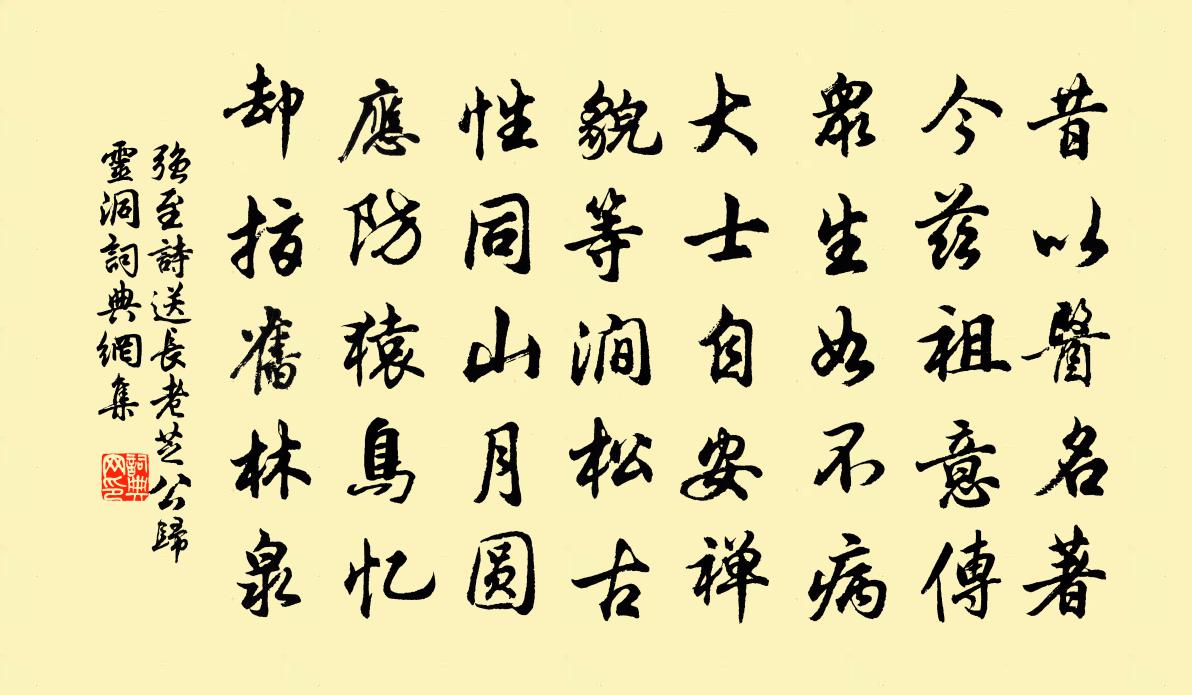 昔以醫名著
今茲祖意傳
眾生如不病
大士自安禅
貌等澗松古
性同山月圆
應防猿鳥忆
却指舊林泉
強至詩送長老芝公歸
靈洞詞典網集
詞典
网印